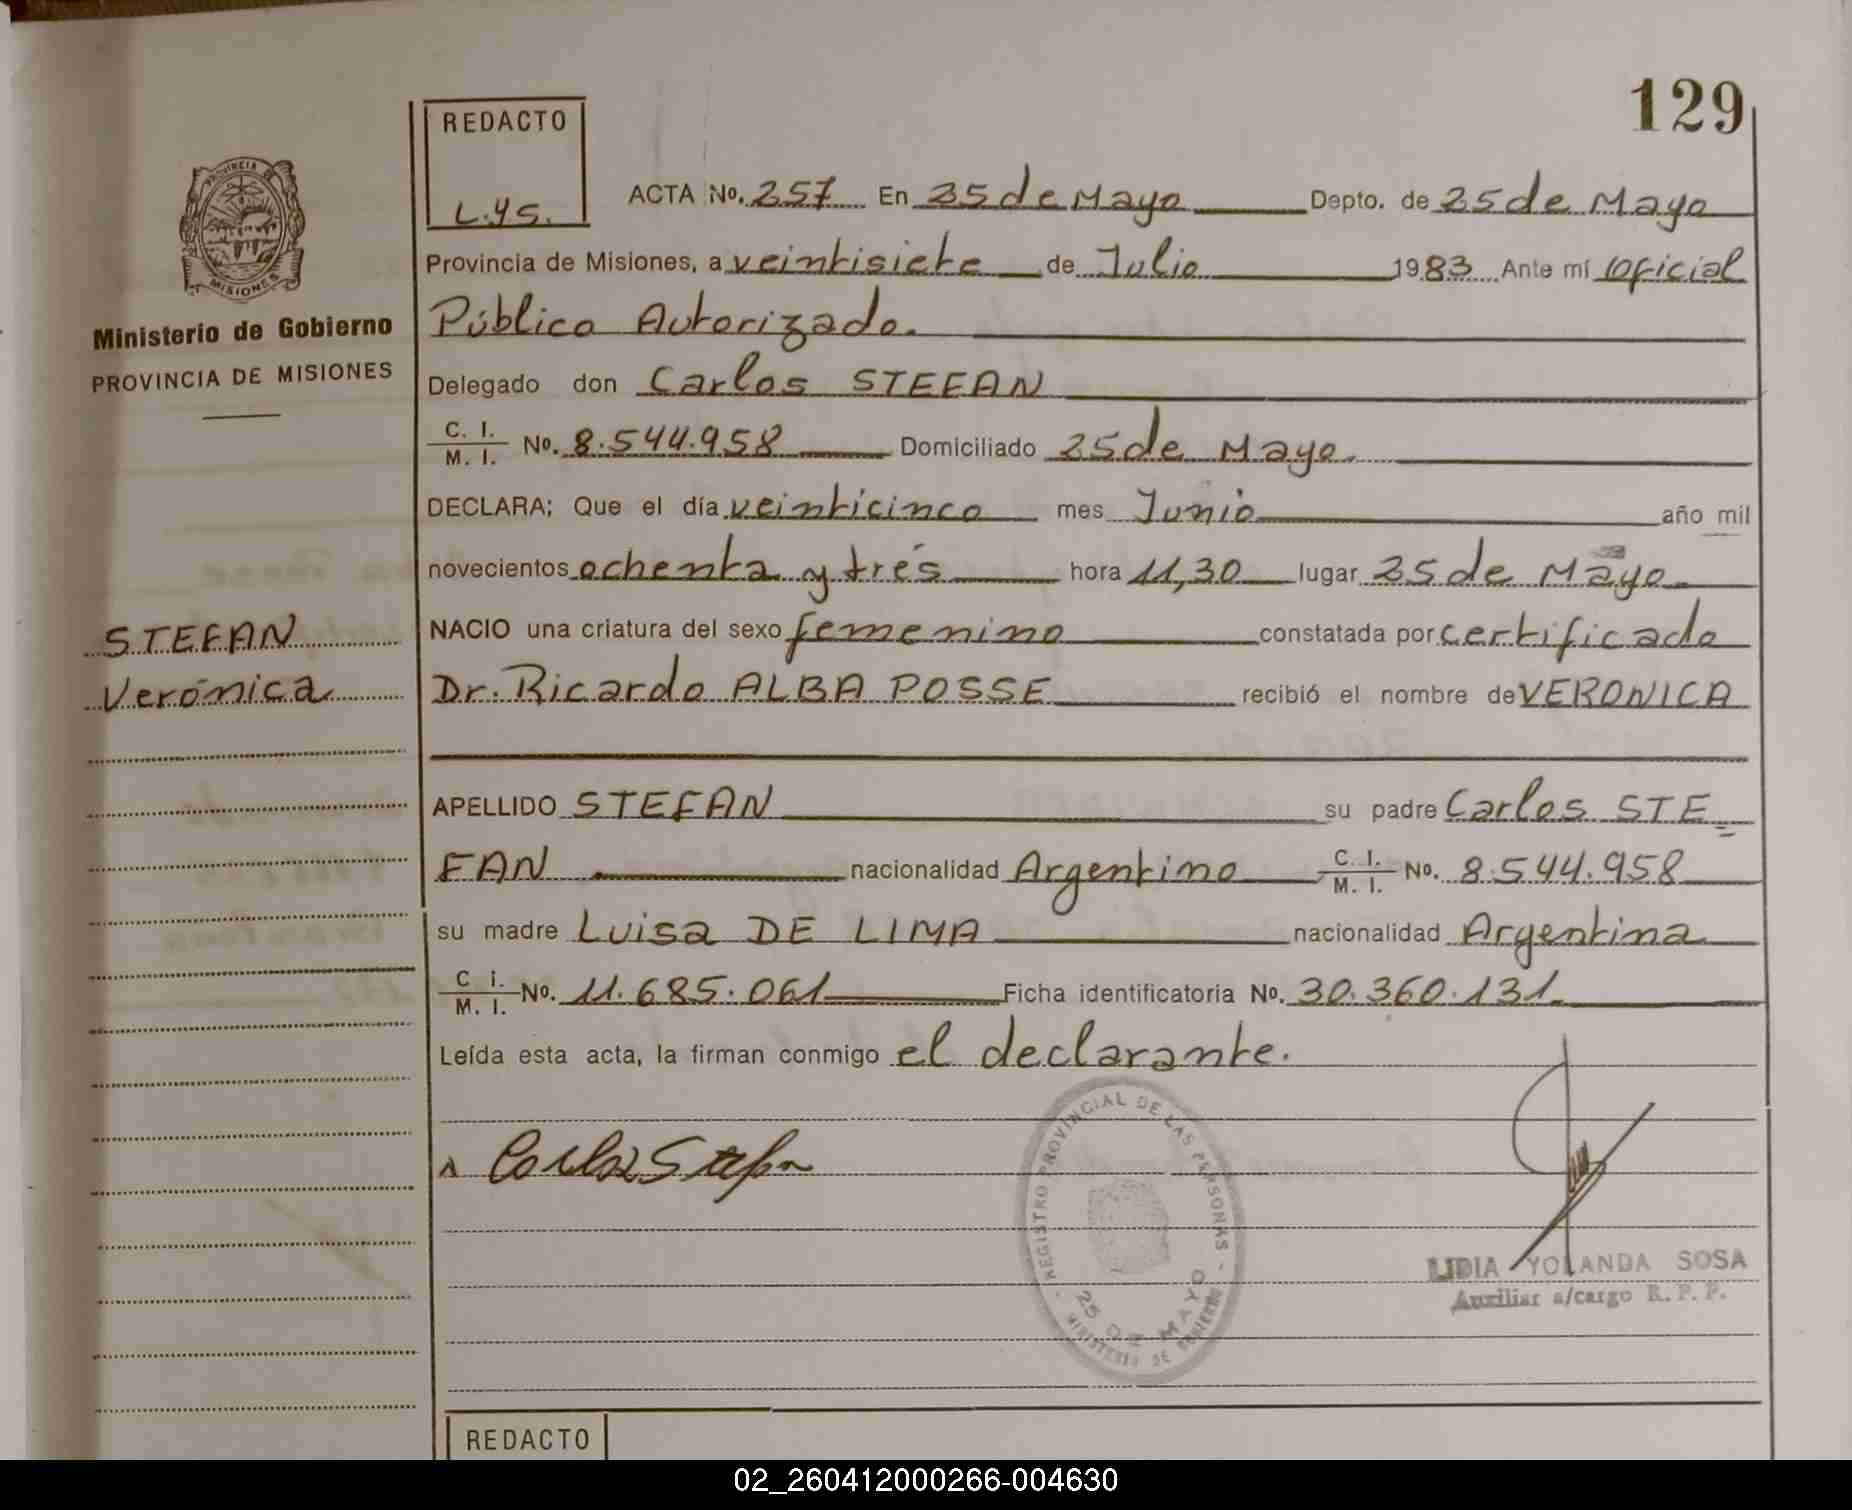 129
REDACTO
L.Y.S.
PROVINCIA DE
MISIONES
Ministerio de Gobierno
PROVINCIA DE MISIONES
ACTA No. 257 En 25 de Mayo Depto. de 25 de Mayo
Provincia de Misiones, a veintisiete de Julio 1983 Ante mí Oficial
Público Autorizado.
Delegado don Carlos STEFAN
C. I. / M. I. No. 8.544.958 Domiciliado 25 de Mayo.
DECLARA; Que el día veinticinco mes Junio año mil
novecientos ochenta y trés hora 11,30 lugar 25 de Mayo
NACIO una criatura del sexo femenino constatada por certificado
Dr. Ricardo ALBA POSSE recibió el nombre de VERONICA
STEFAN
Verónica
APELLIDO STEFAN su padre Carlos STE=
FAN nacionalidad Argentino C. I. / M. I. No. 8.544.958
su madre Luisa DE LIMA nacionalidad Argentina
C i. / M. I. No. 11.685.061 Ficha identificatoria No. 30.360.131.
Leída esta acta, la firman conmigo el declarante.
Carlos Stefan
REGISTRO PROVINCIAL DE LAS PERSONAS - MINISTERIO DE GOBIERNO -
25 DE MAYO
LIDIA YOLANDA SOSA
Auxiliar a/cargo R. P. P.
REDACTO
02_260412000266-004630